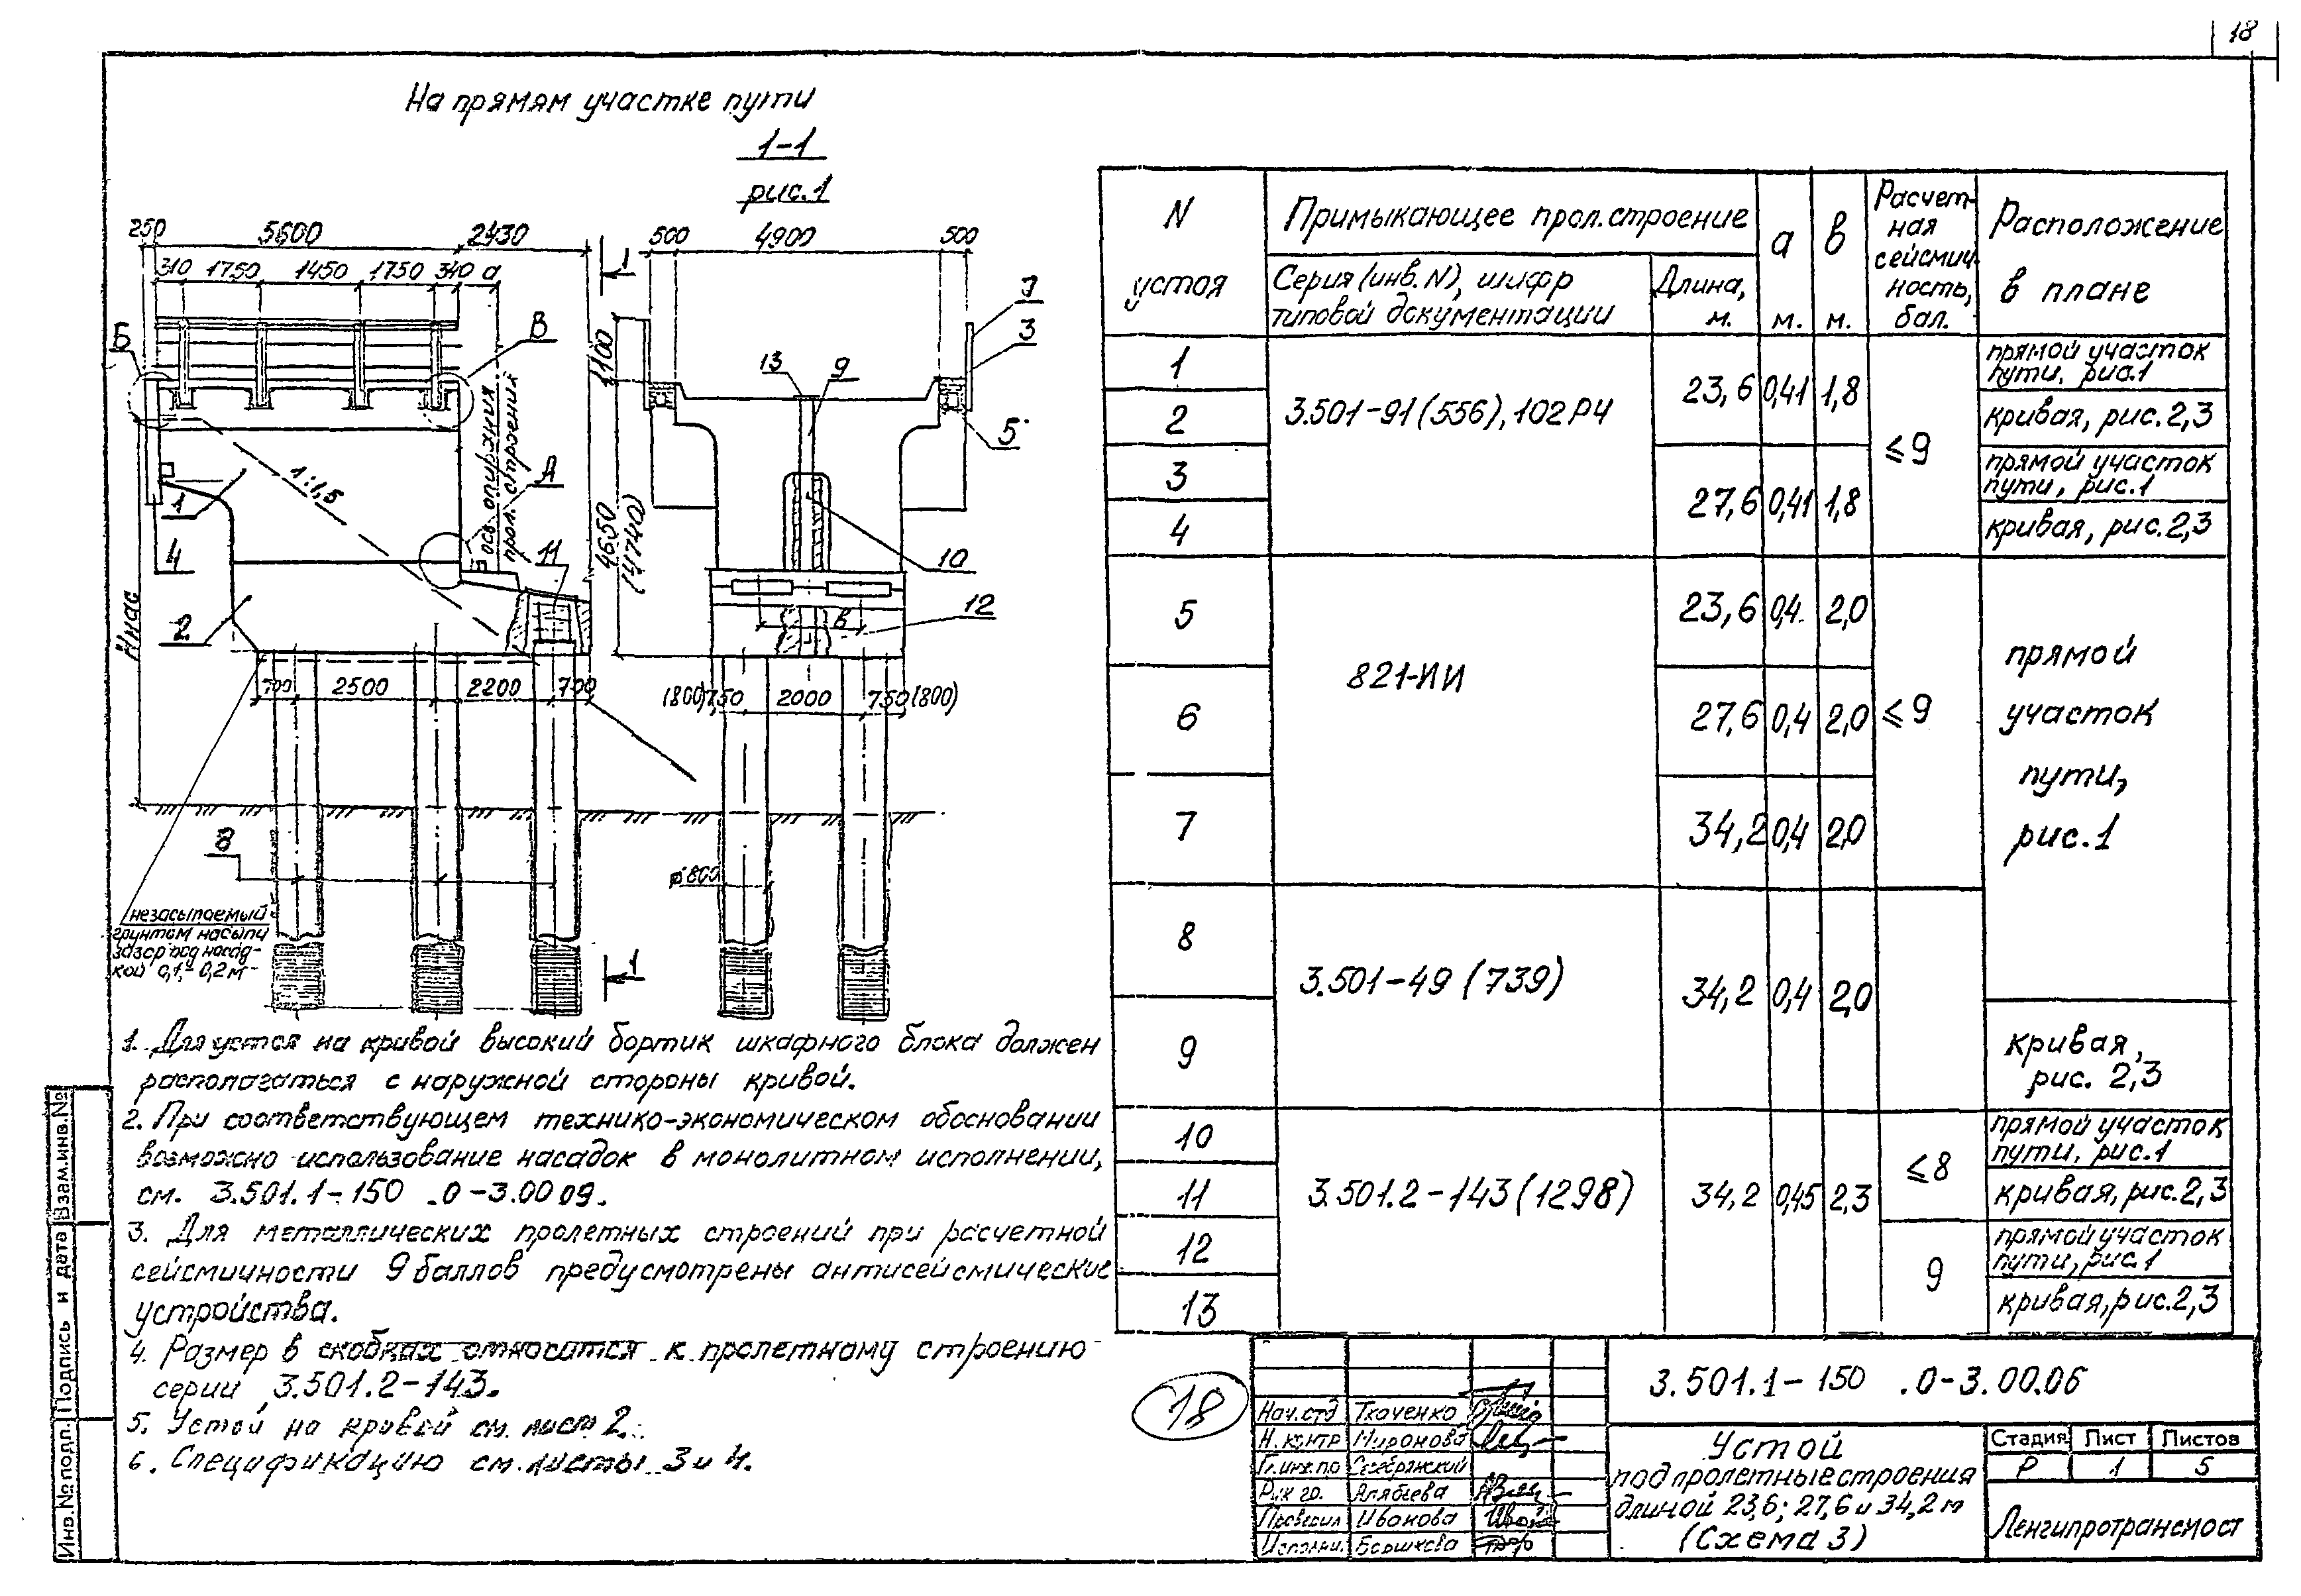 18
На прямям участке пути
1-1
рис.1
250 5600 2430
310 1750 1450 1750 340 а
1
500 4900 500
Б
В
1:1,5
ось опирания
прол. строения
А
1
4
2
11
Ннас
700 2500 2200 700
8
незасыпаемый
грунтом насыпи
зазор под насад-
кой 0,1-0,2м
1
1100
4650
(4740)
13 9
7
3
5
10
12
в
(800) 750 2000 750 (800)
ø800
N устоя
Примыкающее прол. строение
Серия (инв. N), шифр типовой документации
Длина, м.
а м.
в м.
Расчет-ная сейсмич-ность, бал.
Расположение в плане
1 3.501-91 (556), 102РЧ 23,6 0,41 1,8 ≤9 прямой участок пути, рис.1
2 кривая, рис. 2,3
3 27,6 0,41 1,8 прямой участок пути, рис.1
4 кривая, рис. 2,3
5 821-ИИ 23,6 0,4 2,0 ≤9 прямой участок пути, рис.1
6 27,6 0,4 2,0
7 34,2 0,4 2,0
8 3.501-49 (739) 34,2 0,4 2,0
9 кривая, рис. 2,3
10 3.501.2-143 (1298) 34,2 0,45 2,3 ≤8 прямой участок пути, рис.1
11 кривая, рис. 2,3
12 9 прямой участок пути, рис.1
13 кривая, рис. 2,3
1. Для устоя на кривой высокий бортик шкафного блока должен
располагаться с наружной стороны кривой.
2. При соответствующем технико-экономическом обосновании
возможно использование насадок в монолитном исполнении,
см. 3.501.1-150 .0-3.00 09.
3. Для металлических пролетных строений при расчетной
сейсмичности 9 баллов предусмотрены антисейсмические
устройства.
4. Размер в скобках относится к пролетному строению
серии 3.501.2-143.
5. Устой на кривой см. лист 2.
6. Спецификацию см. листы 3 и 4.
18
Нач. отд Ткаченко
Н. контр Миронова
Гл. инж. пр Серебрянский
Рук гр. Алябьева
Проверил Иванова
Исполни. Боршкева
3.501.1-150 .0-3.00.06
Устой
под пролетные строения
длиной 23,6; 27,6 и 34,2 м
(Схема 3)
Стадия Лист Листов
Р 1 5
Ленгипротрансмост
Инв. № подл. Подпись и дата Взам. инв. №